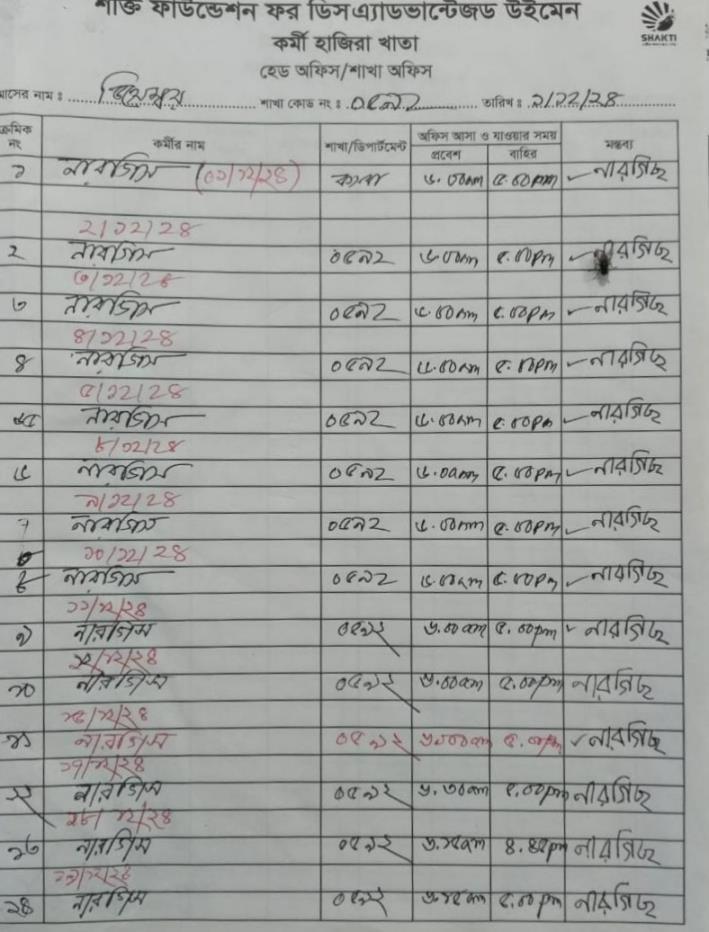 শক্তি ফাউন্ডেশন ফর ডিসএ্যাডভান্টেজড উইমেন
SHAKTI
কর্মী হাজিরা খাতা
হেড অফিস/শাখা অফিস
মাসের নাম ঃ ডিসেম্বর শাখা কোড নং ঃ ০৫৯২ তারিখ ঃ ১/১২/২৪
ক্রমিক নং কর্মীর নাম শাখা/ডিপার্টমেন্ট অফিস আসা ও যাওয়ার সময় মন্তব্য
প্রবেশ বাহির
১ নারগিস (০১/১২/২৪) ৬.০০am ৫.০০pm নারগিছ
২/১২/২৪
২ নারগিস ০৫৯২ ৬.০০am ৫.০০pm নারগিছ
৩/১২/২৪
৩ নারগিস ০৫৯২ ৬.০০am ৫.০০pm নারগিছ
৪/১২/২৪
৪ নারগিস ০৫৯২ ৬.০০am ৫.০০pm নারগিছ
৫/১২/২৪
৫ নারগিস ০৫৯২ ৬.০০am ৫.০০pm নারগিছ
৮/১২/২৪
৬ নারগিস ০৫৯২ ৬.০০am ৫.০০pm নারগিছ
৯/১২/২৪
৭ নারগিস ০৫৯২ ৬.০০am ৫.০০pm নারগিছ
১০/১২/২৪
৮ নারগিস ০৫৯২ ৬.০০am ৫.০০pm নারগিছ
১১/১২/২৪
৯ নারগিস ০৫৯২ ৬.০০am ৫.০০pm নারগিছ
১২/১২/২৪
১০ নারগিস ০৫৯২ ৬.০০am ৫.০০pm নারগিছ
১৫/১২/২৪
১১ নারগিস ০৫৯২ ৬.০০am ৫.০০pm নারগিছ
১৭/১২/২৪
১২ নারগিস ০৫৯২ ৬.৩০am ৫.০০pm নারগিছ
১৮/১২/২৪
১৩ নারগিস ০৫৯২ ৬.১৫am ৪.৪৫pm নারগিছ
১৯/১২/২৪
১৪ নারগিস ০৫৯২ ৬.১৫am ৫.০০pm নারগিছ